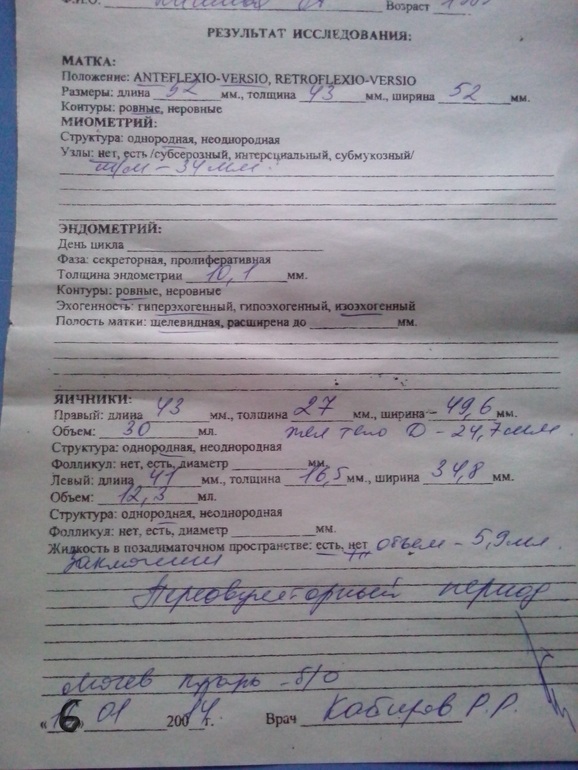 Ф.И.О. Возраст
РЕЗУЛЬТАТ ИССЛЕДОВАНИЯ:
МАТКА:
Положение: ANTEFLEXIO-VERSIO, RETROFLEXIO-VERSIO
Размеры: длина 52 мм., толщина 43 мм., ширина 52 мм.
Контуры: ровные, неровные
МИОМЕТРИЙ:
Структура: однородная, неоднородная
Узлы: нет, есть /субсерозный, интерсциальный, субмукозный/
- 34 мм.
ЭНДОМЕТРИЙ:
День цикла
Фаза: секреторная, пролиферативная
Толщина эндометрии 10,1 мм.
Контуры: ровные, неровные
Эхогенность: гиперэхогенный, гипоэхогенный, изоэхогенный
Полость матки: щелевидная, расширена до мм.
ЯИЧНИКИ:
Правый: длина 43 мм., толщина 27 мм., ширина - 49,6 мм.
Объем: 30 мл. жел тело D - 24,7 мм
Структура: однородная, неоднородная
Фолликул: нет, есть, диаметр мм.
Левый: длина 41 мм., толщина 16,5 мм., ширина 34,8 мм.
Объем: 12,3 мл.
Структура: однородная, неоднородная
Фолликул: нет, есть, диаметр мм.
Жидкость в позадиматочном пространстве: есть, нет объем - 5,9 мл.
период
Мочев пузырь - б/о
« 6 » 01 200 14 г. Врач Кабиров Р.Р.